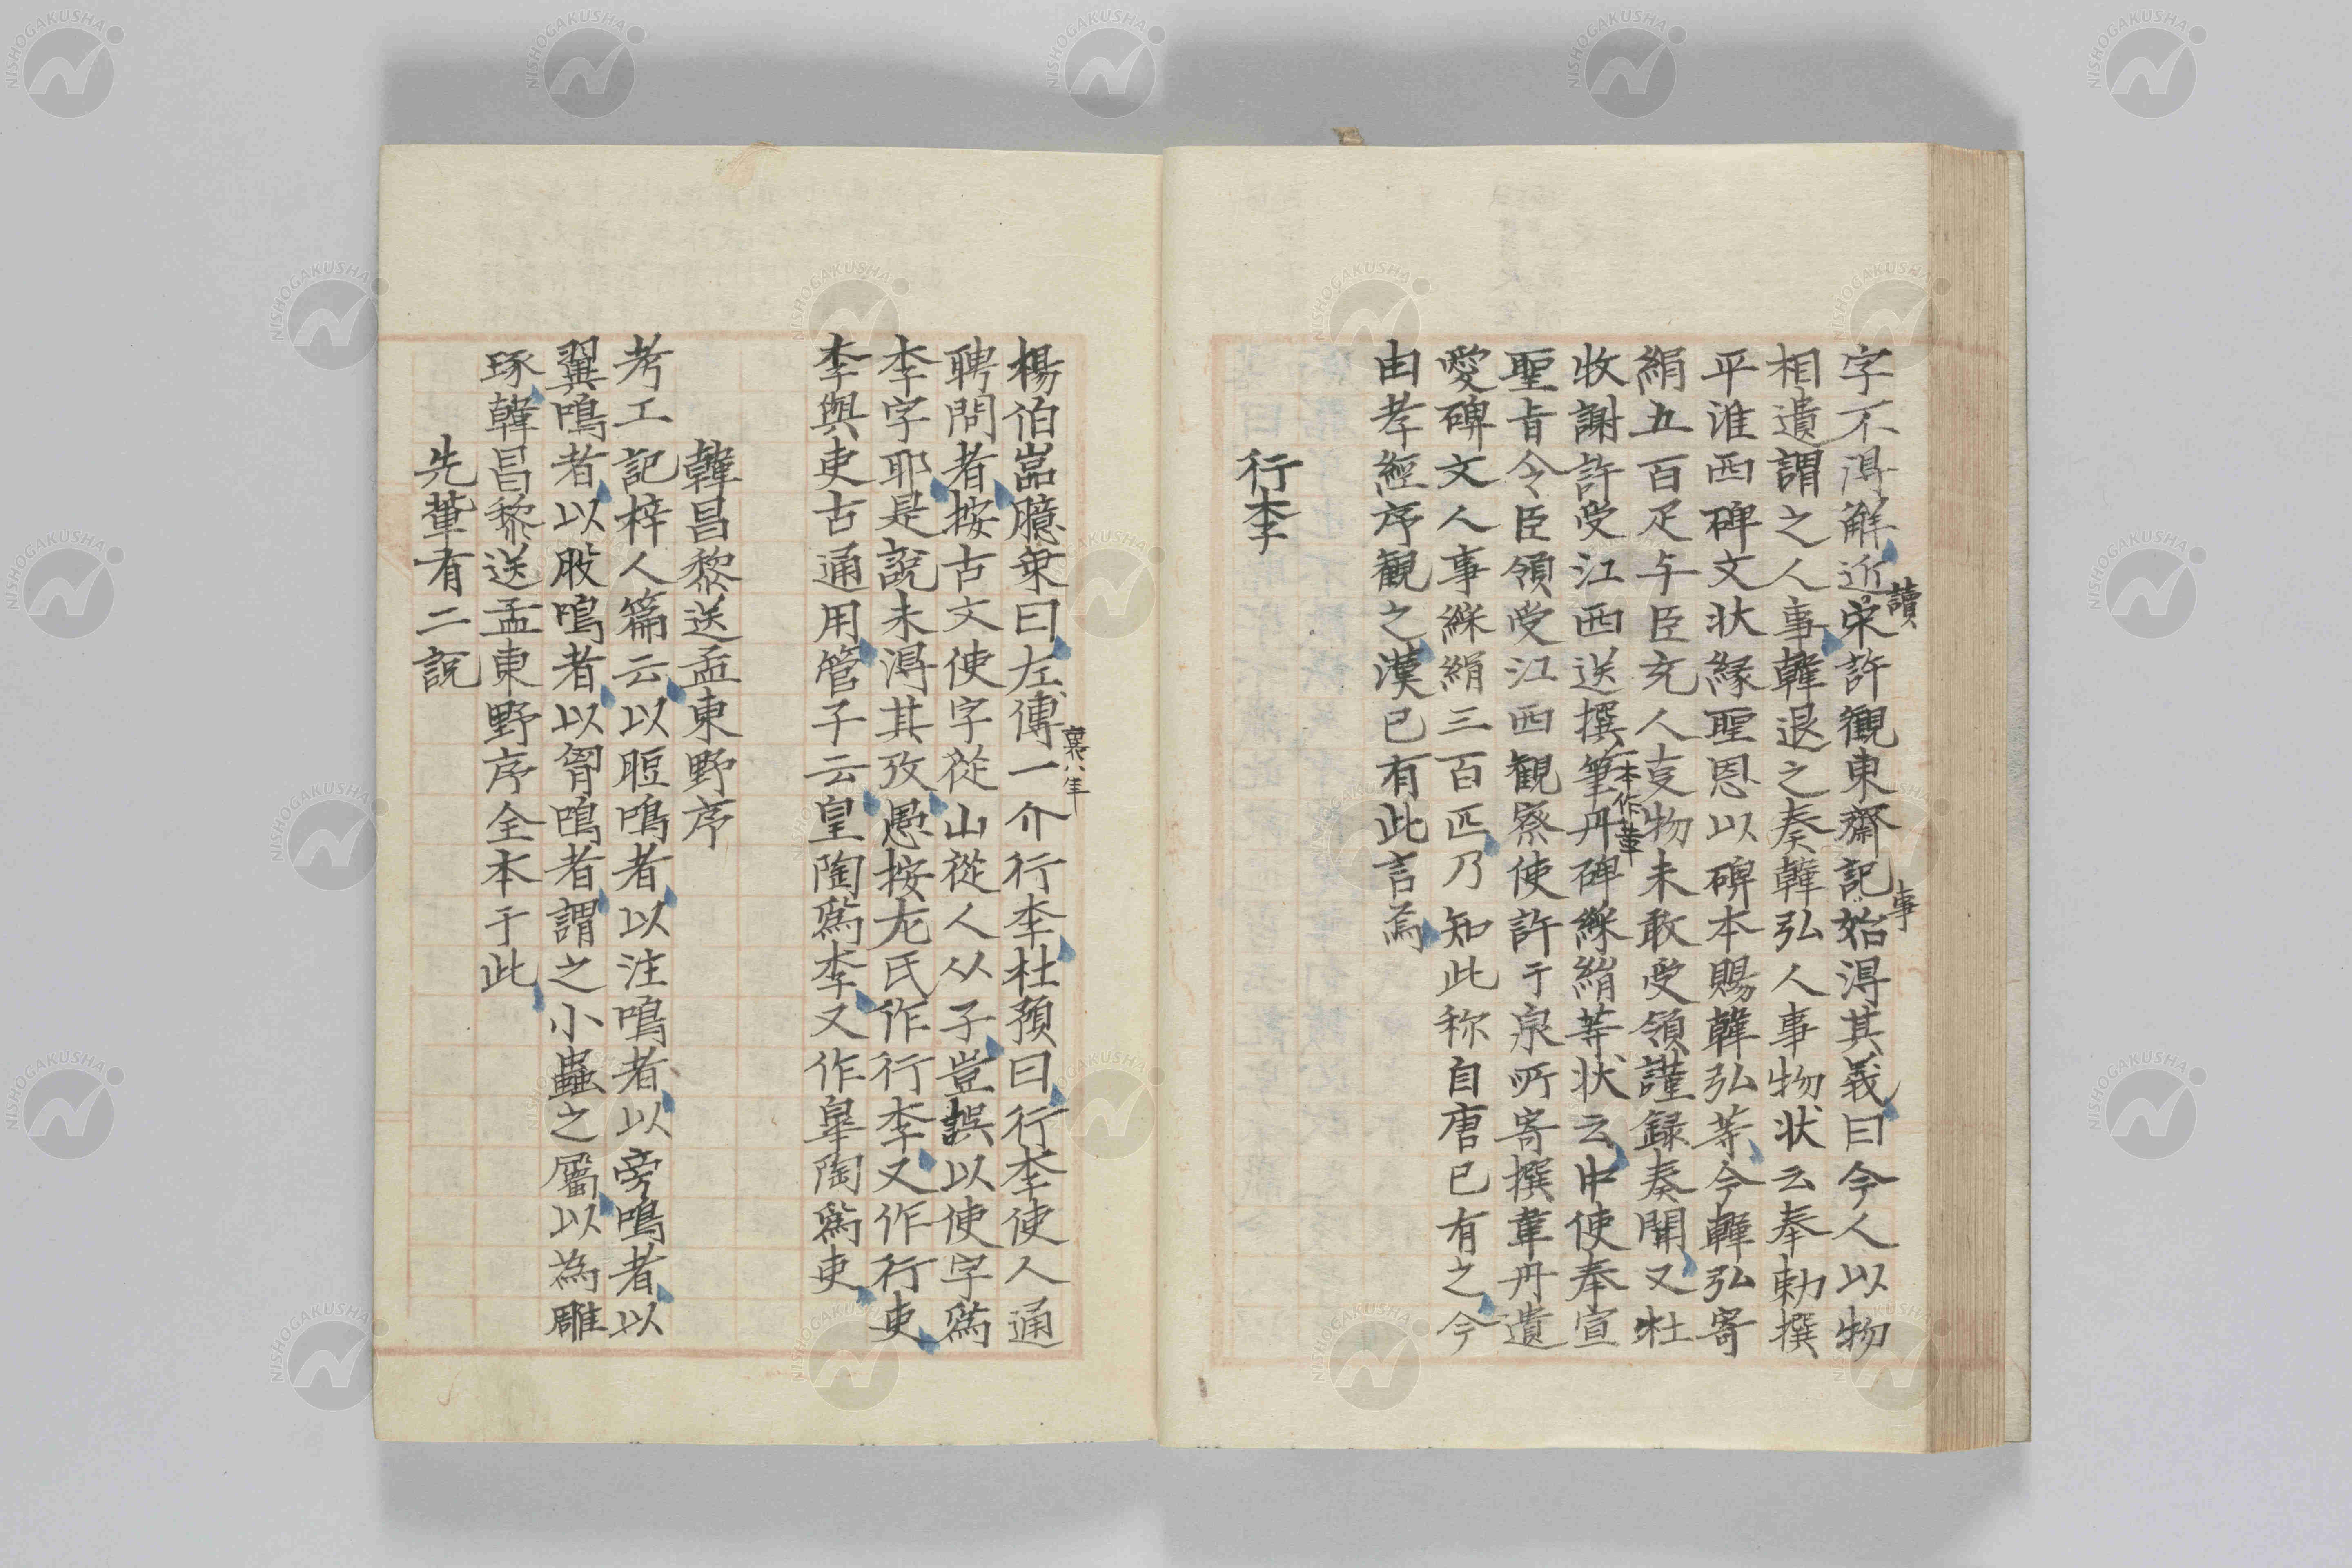 字不得解近讀宋許觀東齋記事始得其義曰今人以物
相遺謂之人事韓退之奏韓弘人事物状云奉勅撰
平淮西碑文状縁聖恩以碑本賜韓弘等今韓弘寄
絹五百疋与臣充人事物未敢受領謹録奏聞又杜
收謝許受江西送撰筆一本作韋丹碑綵絹等状云中使奉宣
聖旨令臣領受江西観察使許于泉所寄撰韋丹遺
愛碑文人事綵絹三百匹乃知此称自唐已有之今
由孝經序観之漢已有此言焉
行李
楊伯嵒臆乗曰左傳襄八年一介行李杜預曰行李使人通
聘問者按古文使字從山從人从子豈誤以使字爲
李字耶是說未得其攷愚按左氏作行李又作行吏
李與吏古通用管子云皇陶爲李又作皐陶爲吏
韓昌黎送孟東野序
考工記梓人篇云以脰鳴者以注鳴者以旁鳴者以
翼鳴者以股鳴者以胷鳴者謂之小蟲之屬以為雕
琢韓昌黎送孟東野序全本于此
先輩有二説
NISHOGAKUSHA